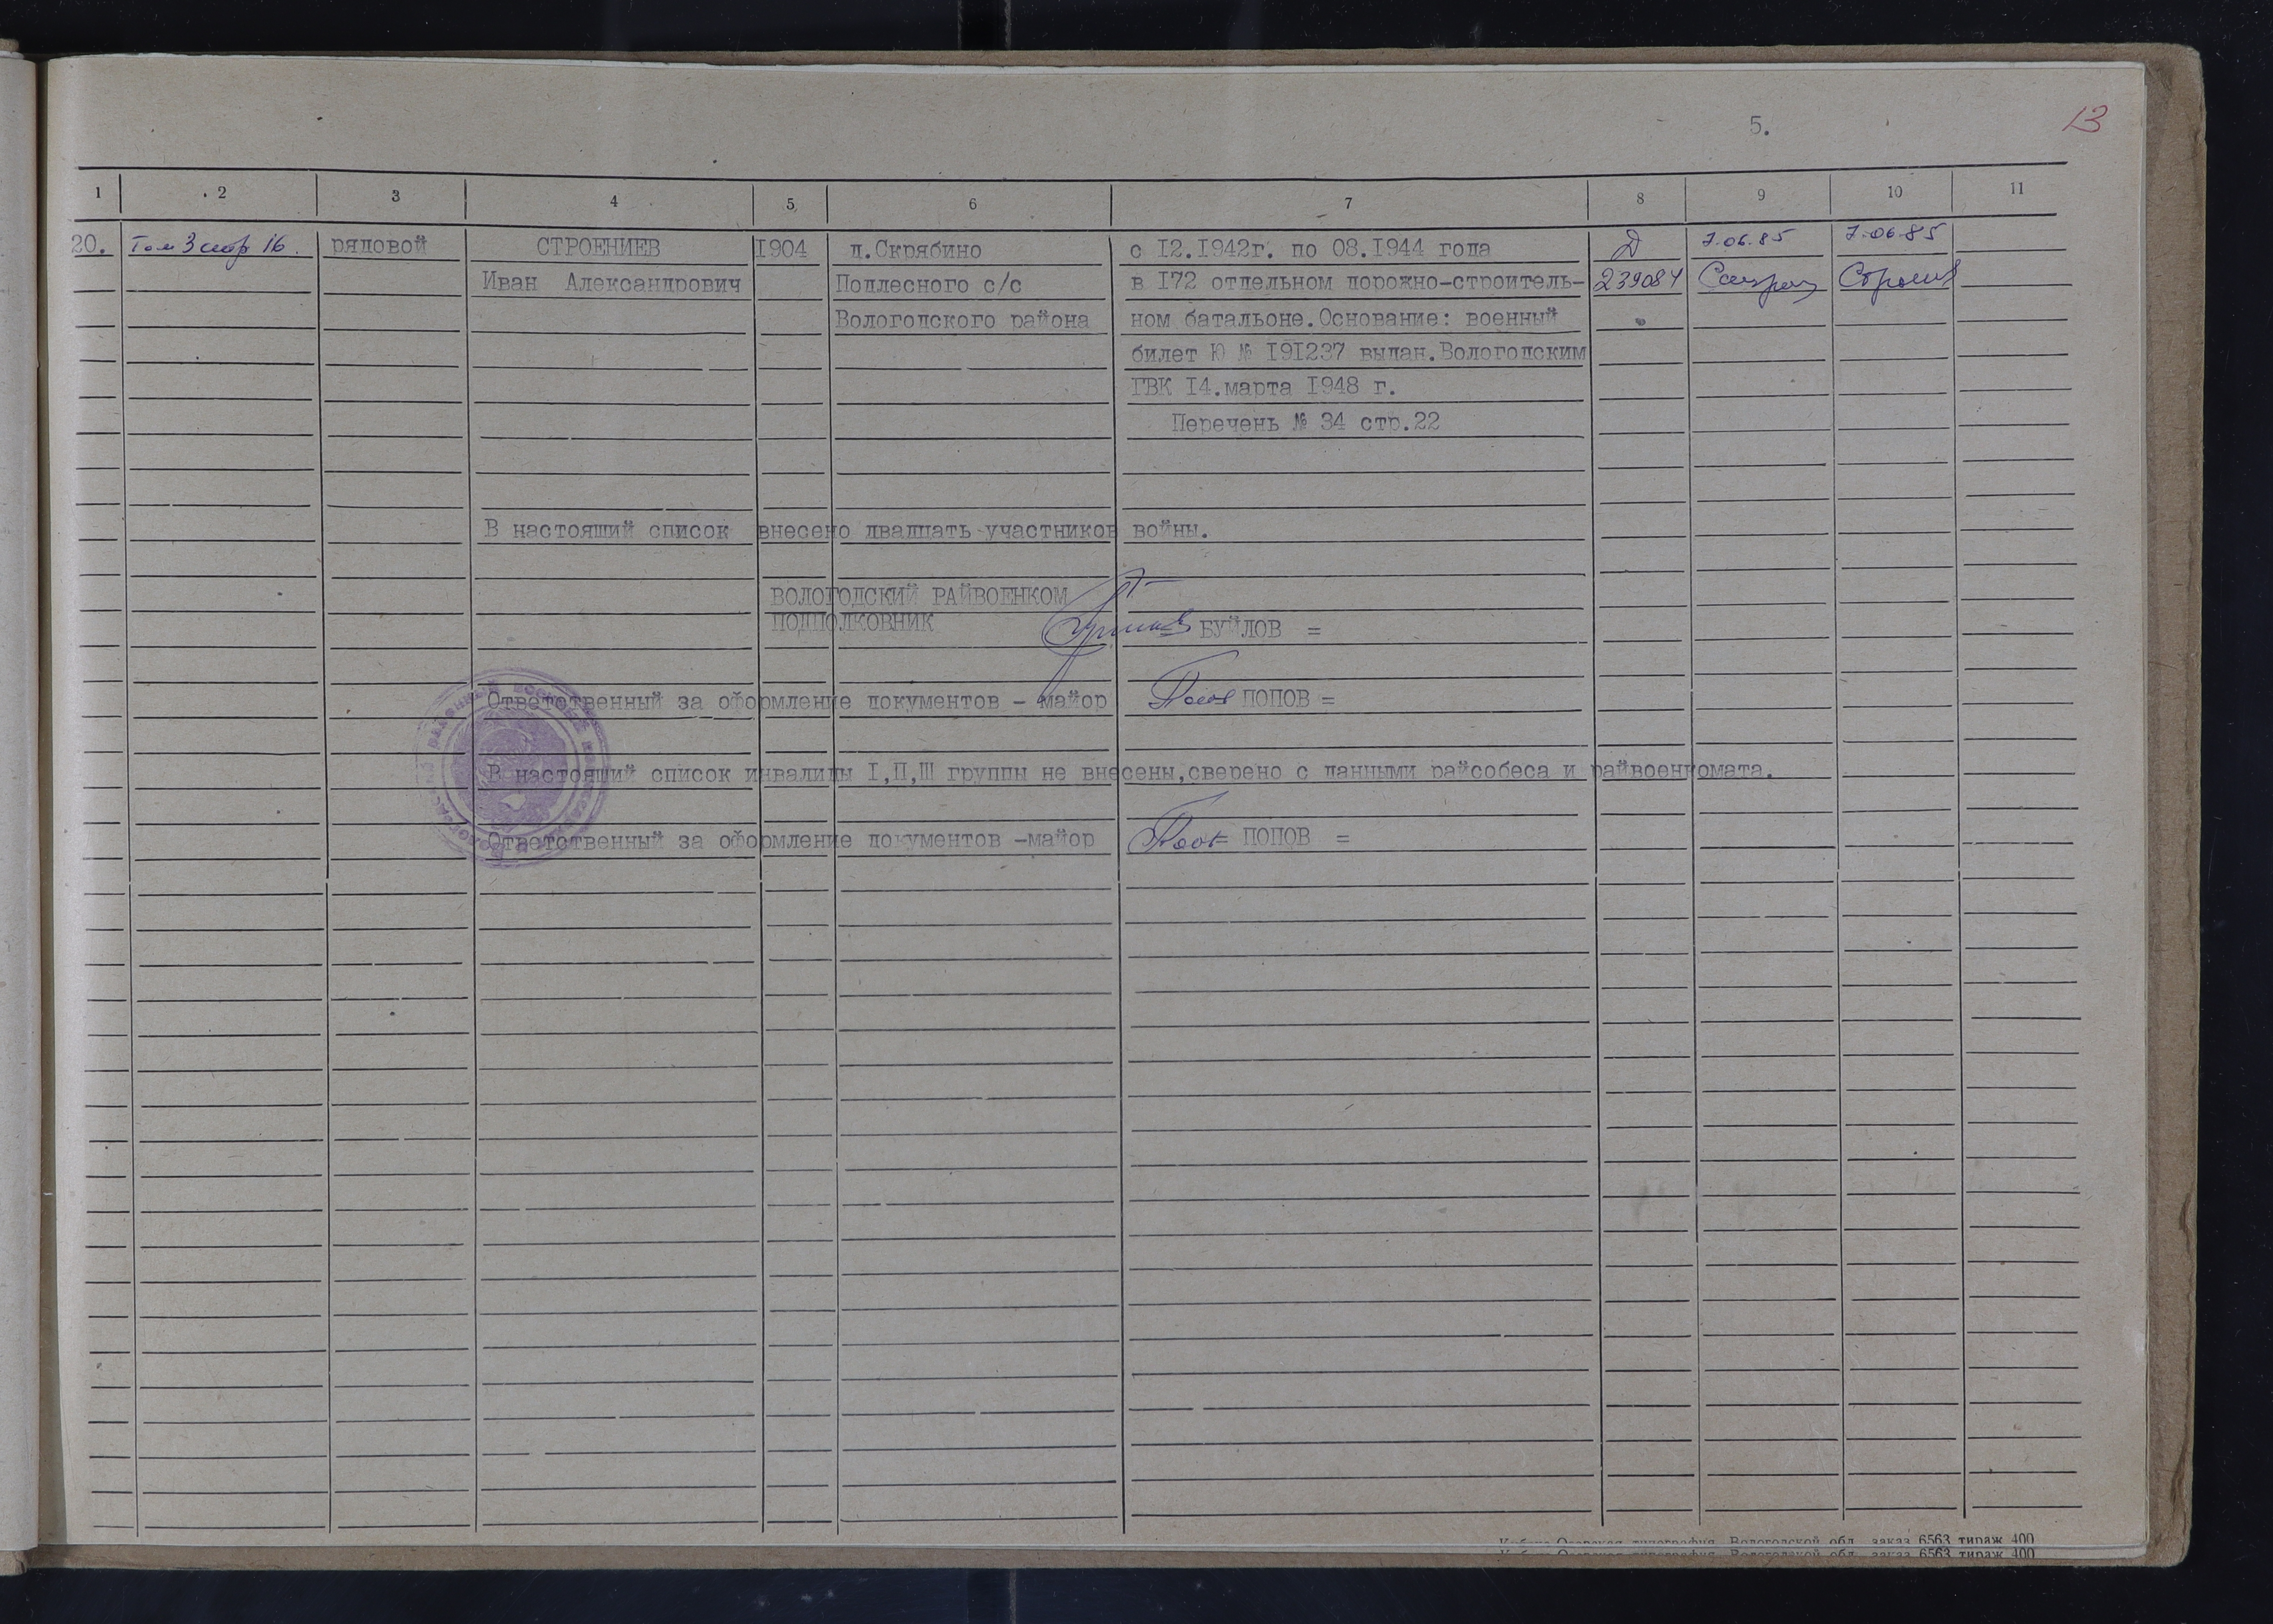 5.
13
1 2 3 4 5 6 7 8 9 10 11
20. Том 3 стр 16. рядовой СТРОЕНИЕВ 1904 д.Скрябино с 12.1942г. по 08.1944 года Д 7.06.85 7.06.85
Иван Александрович Подлесного с/с в 172 отдельном дорожно-строитель- 239084
Вологодского района ном батальоне.Основание: военный
билет Ю № 191237 выдан.Вологодским
ГВК 14.марта 1948 г.
Перечень № 34 стр.22
В настоящий список внесено двадцать участников войны.
ВОЛОГОДСКИЙ РАЙВОЕНКОМ
ПОДПОЛКОВНИК БУЙЛОВ =
Ответственный за оформление документов - майор ПОПОВ =
В настоящий список инвалиды I,П,Ш группы не внесены,сверено с данными райсобеса и райвоенкомата.
Ответственный за оформление документов -майор ПОПОВ =
Вологодской обл. заказ 6563 тираж 400
Вологодской обл. заказ 6563 тираж 400